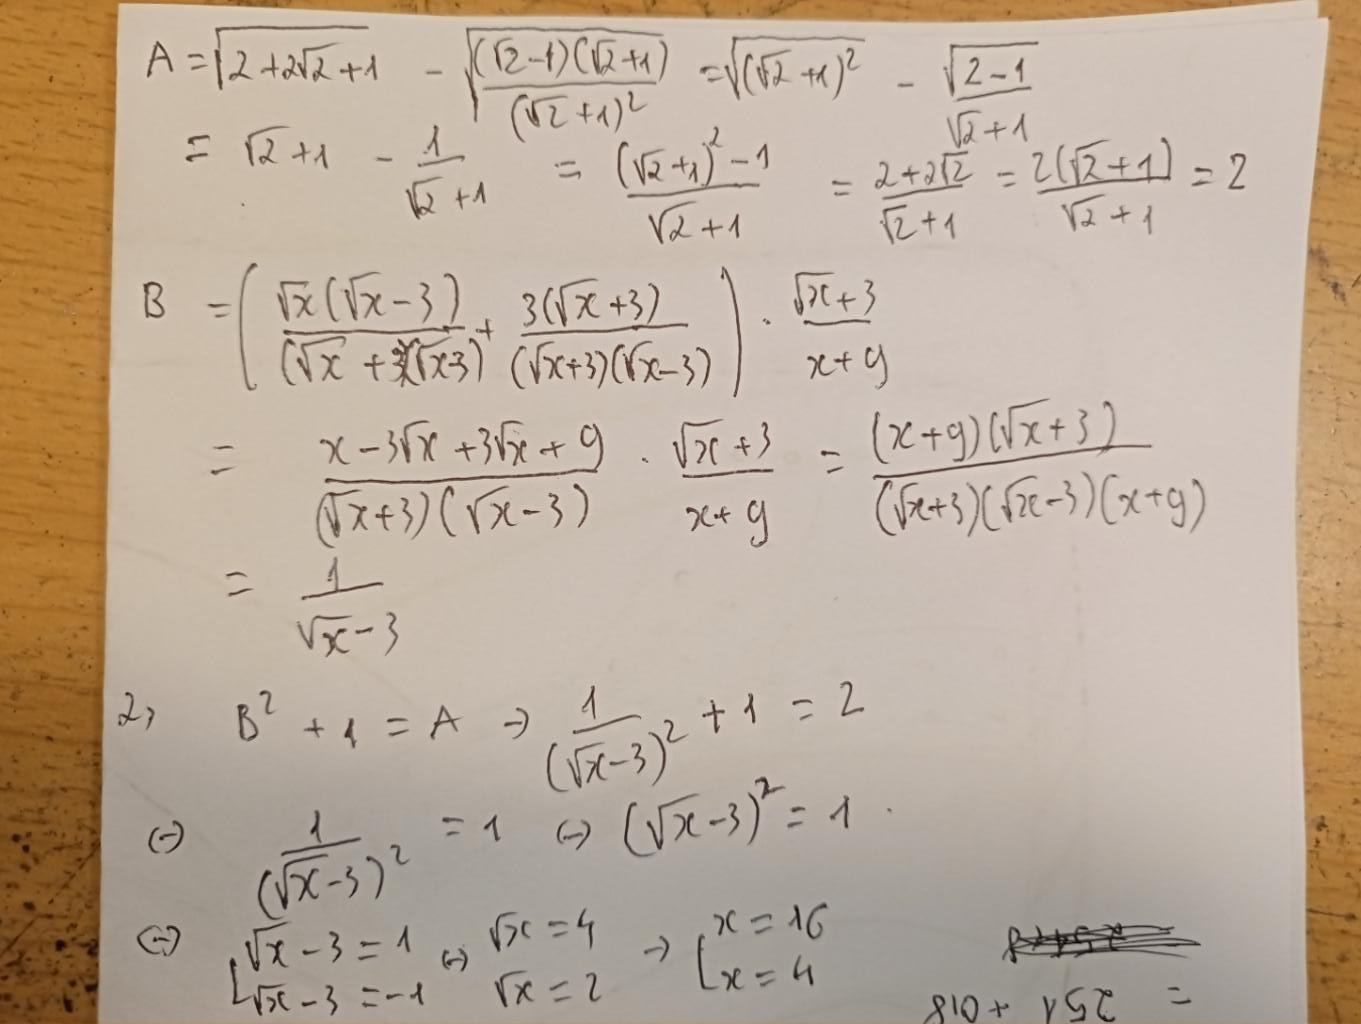 A = √(2+2√2+1) - √((√2-1)(√2+1)/(√2+1)²) = √((√2+1)²) - √(2-1)/(√2+1)
= √2+1 - 1/(√2+1) = ((√2+1)²-1)/(√2+1) = (2+2√2)/(√2+1) = 2(√2+1)/(√2+1) = 2
B = (√x(√x-3)/((√x+3)(√x-3)) + 3(√x+3)/((√x+3)(√x-3))) . (√x+3)/(x+9)
= (x-3√x+3√x+9)/((√x+3)(√x-3)) . (√x+3)/(x+9) = (x+9)(√x+3)/((√x+3)(√x-3)(x+9))
= 1/(√x-3)
2, B²+1 = A → 1/(√x-3)²+1 = 2
(-) 1/(√x-3)² = 1 (-) (√x-3)² = 1.
(-) [√x-3 = 1 (-) √x = 4 → [x = 16
√x-3 = -1 √x = 2 x = 4
= 251 + 018